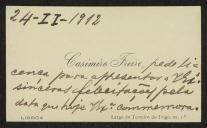 24-II-1912
Casimiro Freire, pede li
cença para apresentar a V. Ex.ª
sinceras felicitações pela
data que hoje V. Ex.ª commemora.
LISBOA
Largo do Terreiro do Trigo, n.º